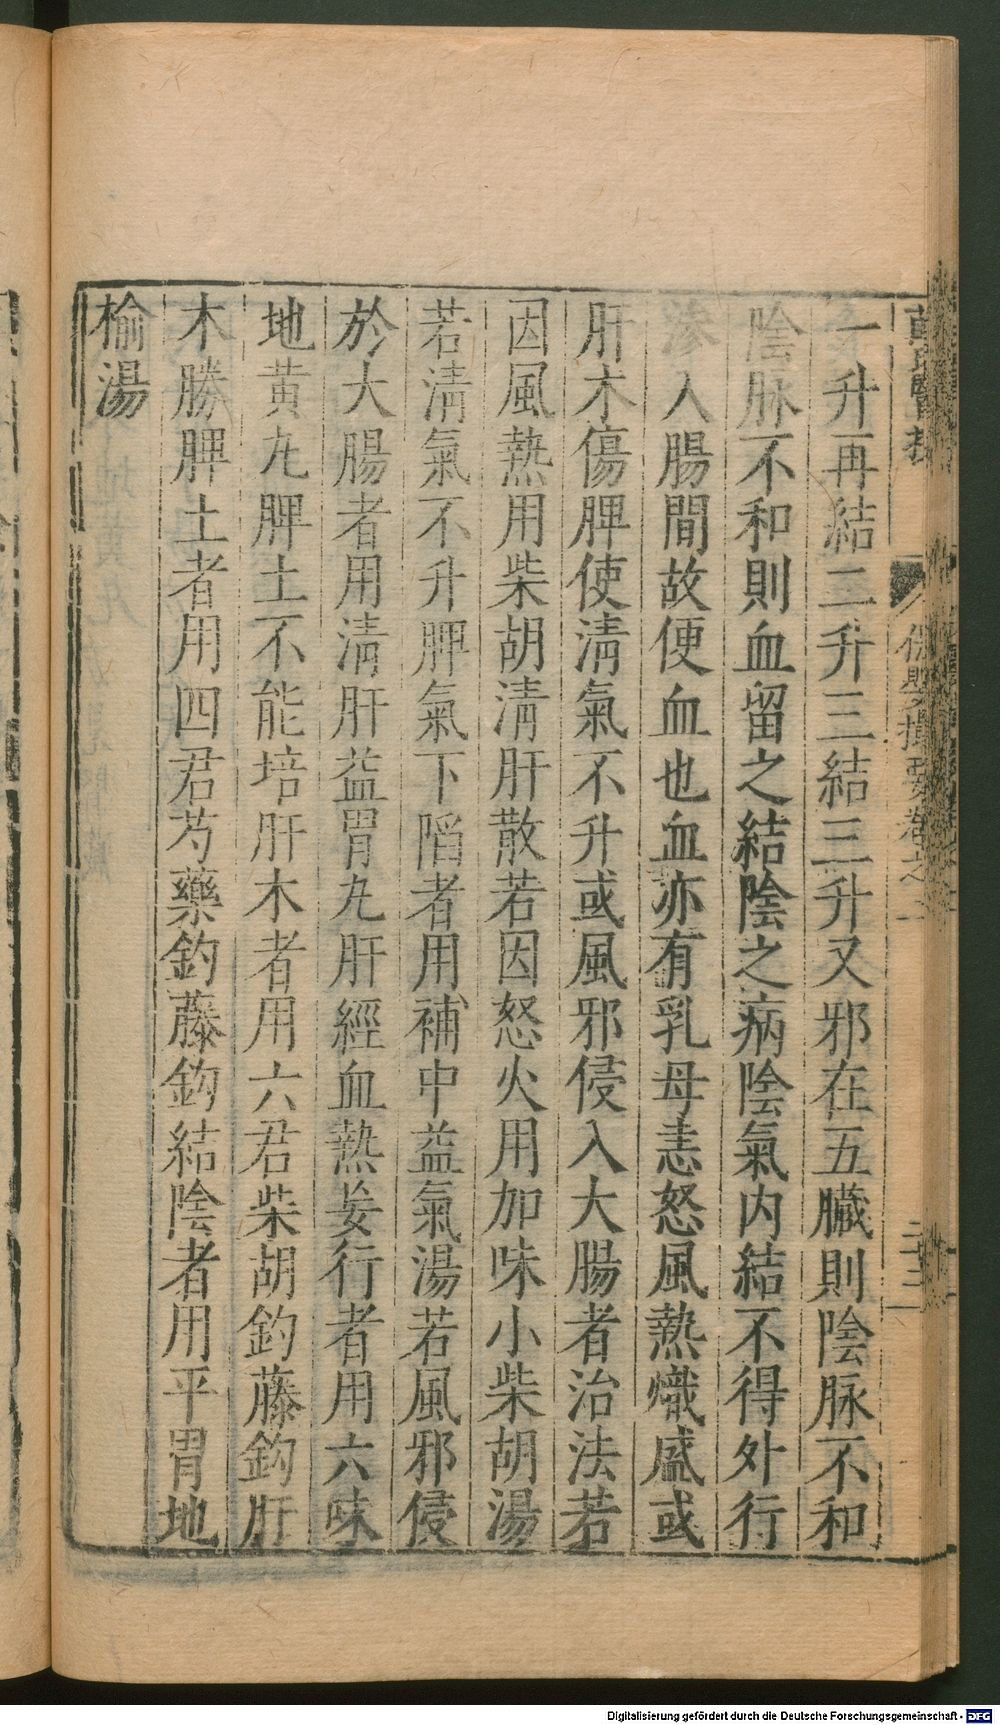 薛氏醫按 保嬰撮要卷之
一升再結二升三結三升又邪在五臟則陰脉不和
陰脉不和則血留之結陰之病陰氣内結不得外行
滲入腸間故便血也血亦有乳母恚怒風熱熾盛或
肝木傷脾使淸氣不升或風邪侵入大腸者治法若
因風熱用柴胡淸肝散若因怒火用加味小柴胡湯
若淸氣不升脾氣下陷者用補中益氣湯若風邪侵
於大腸者用淸肝益胃丸肝經血熱妄行者用六味
地黄丸脾土不能培肝木者用六君柴胡鈎藤鈎肝
木勝脾土者用四君芍藥鈎藤鈎結陰者用平胃地
榆湯
Digitalisierung gefördert durch die Deutsche Forschungsgemeinschaft - DFG